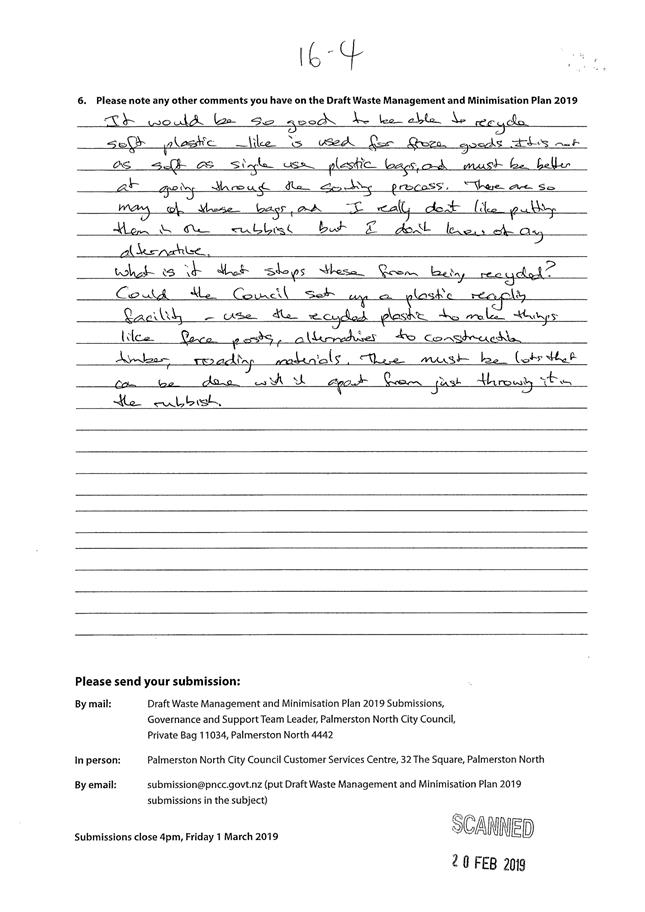 16-4
6. Please note any other comments you have on the Draft Waste Management and Minimisation Plan 2019
It would be so good to be able to recycle
soft plastic - like is used for froze goods. It is not
as soft as single use plastic bags, and must be better
at going through the sorting process. There are so
may of these bags, and I really don't like putting
them in the rubbish but I don't know of any
alternative.
What is it that stops these from being recycled?
Could the Council set up a plastic
facility - use the recycled plastic to make things
like fence posts, alternatives to construction
timber, roading materials. There must be lots that
can be done with it apart from just throwing it in
the rubbish.
Please send your submission:
By mail: Draft Waste Management and Minimisation Plan 2019 Submissions,
Governance and Support Team Leader, Palmerston North City Council,
Private Bag 11034, Palmerston North 4442
In person: Palmerston North City Council Customer Services Centre, 32 The Square, Palmerston North
By email: submission@pncc.govt.nz (put Draft Waste Management and Minimisation Plan 2019
submissions in the subject)
Submissions close 4pm, Friday 1 March 2019
SCANNED
20 FEB 2019